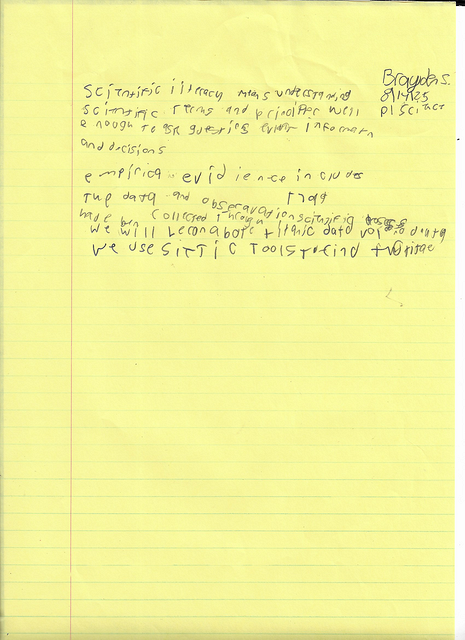 Brayden S.
8/14/25
p1 Science
Scientific literacy means understanding
scientific terms and principles well
enough to ask questions evalute information
and decisions
empirical evidience includes
the data and observations that
have ben collected through scientific
we will lecon about titanic data
we use tools to find